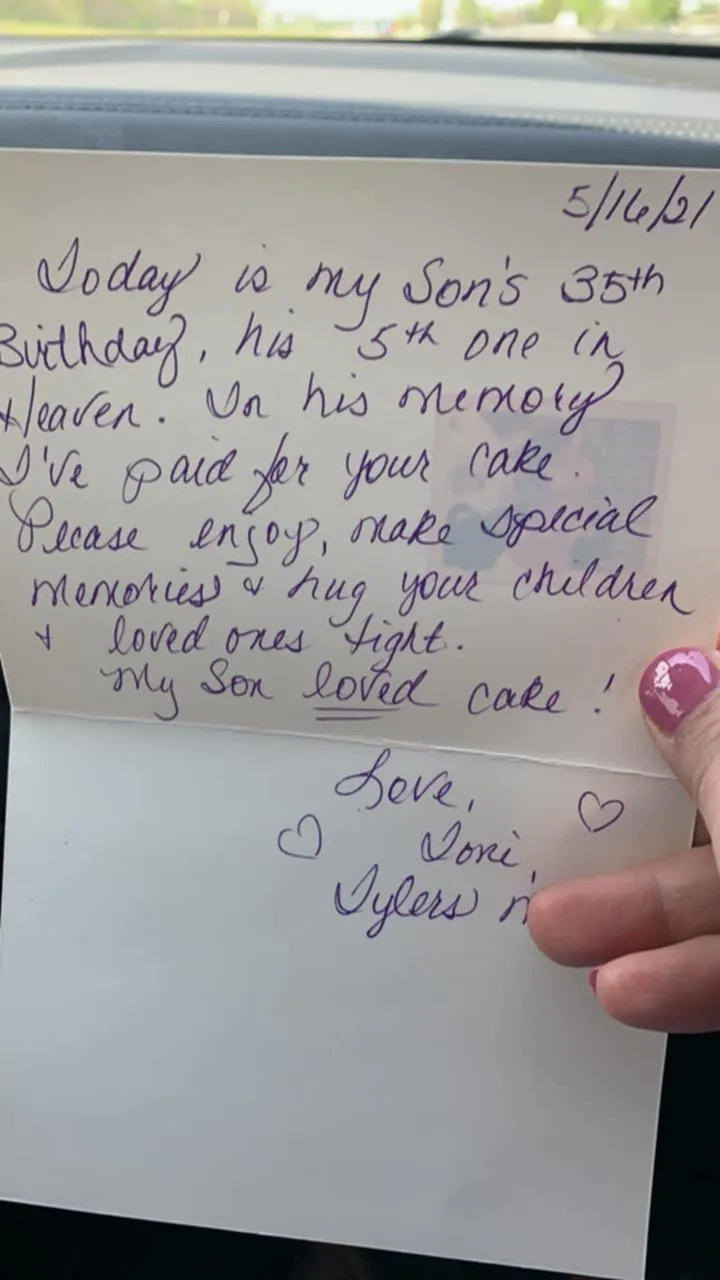 5/16/21
Today is my Son's 35th
Birthday, his 5th one in
Heaven. In his memory
I've paid for your cake.
Please enjoy, make special
memories & hug your children
& loved ones tight.
My Son loved cake!
Love,
Tori,
Tylers